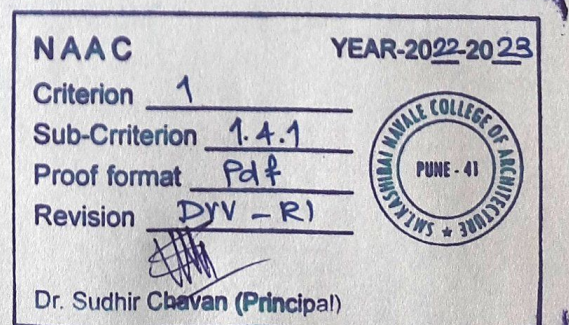 NAAC YEAR-2022-2023
Criterion 1
Sub-Crriterion 1.4.1
Proof format Pdf
Revision DVV - R1
SMT.KASHIBAI NAVALE COLLEGE OF ARCHITECTURE ★
PUNE - 41
Dr. Sudhir Chavan (Principal)